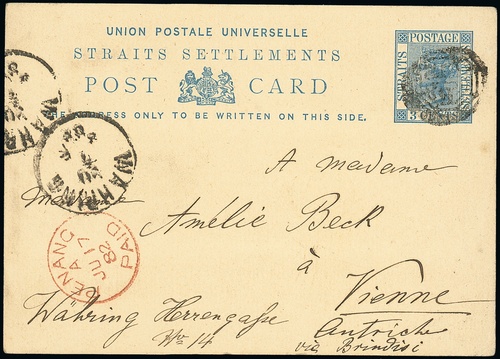 UNION POSTALE UNIVERSELLE
STRAITS SETTLEMENTS
POST CARD
ADDRESS ONLY TO BE WRITTEN ON THIS SIDE.
STRAITS
POSTAGE
3 CENTS
WÄHRING
WÄHRING
PENANG PAID
A
JU 17
82
A madame
Madame
Amélie Beck
à
Vienne
Währing Herrengasse
No 14
Autriche
via Brindisi